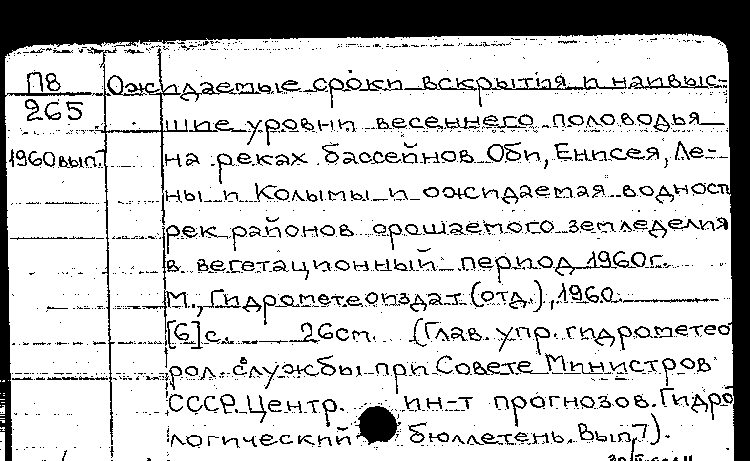 П8 Ожидаемые сроки вскрытия и наивыс-
265 шие уровни весеннего половодья
1960 вып.7 на реках бассейнов Оби, Енисея, Ле-
ны и Колымы и ожидаемая водност
рек районов орошаемого земледелия
в вегетационный период 1960г.
М., Гидрометеоиздат (отд.), 1960.
[6]с. 26см. (Глав. упр. гидрометео
рол. службы при Совете Министров
СССР. Центр. ин-т прогнозов. Гидро
логический бюллетень. Вып.7).